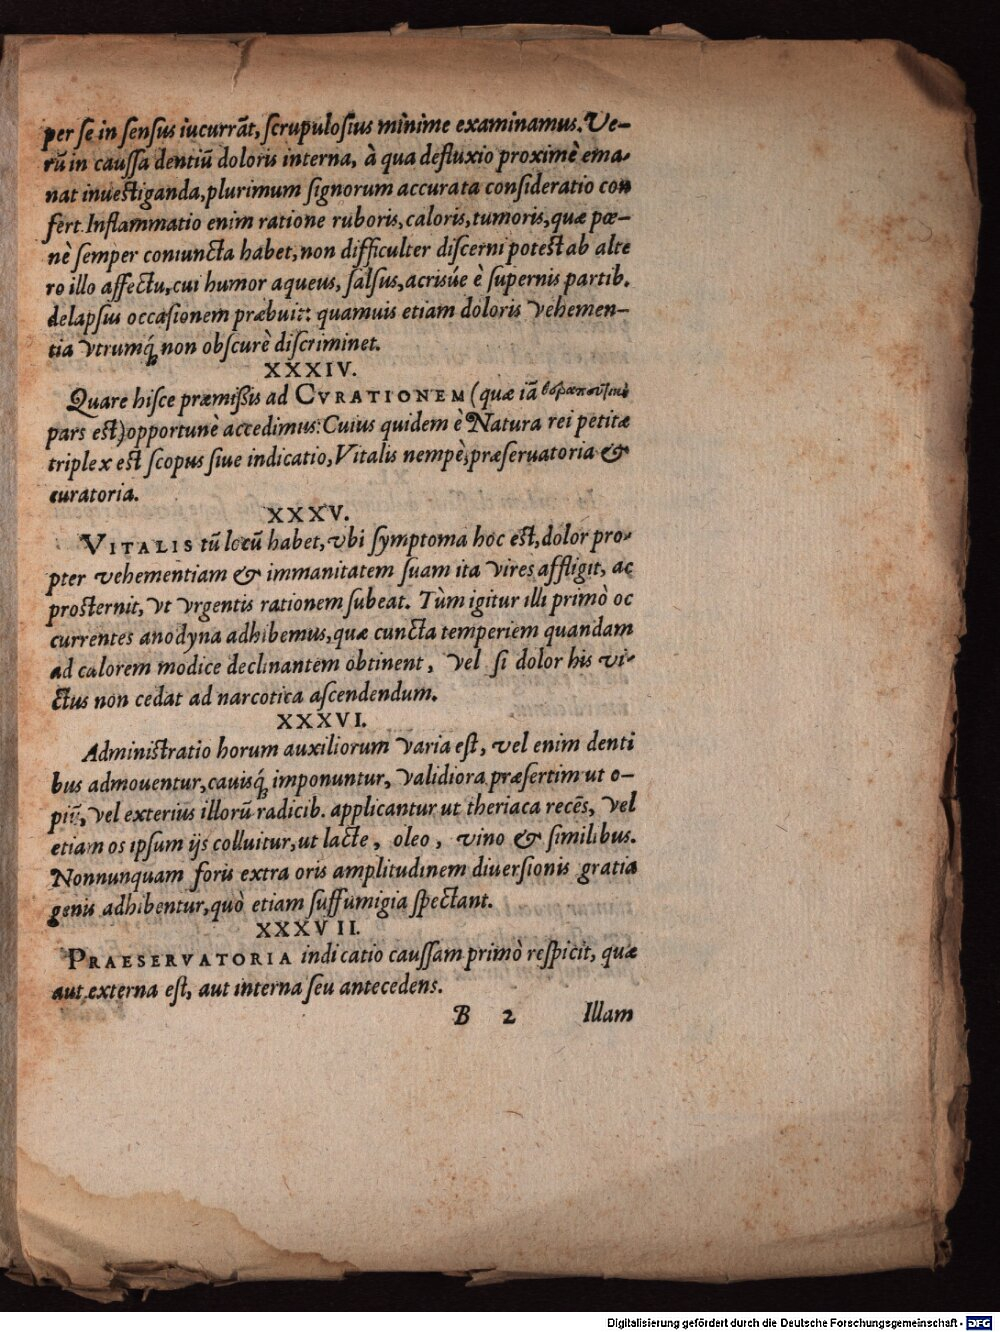 per ſe in ſenſus iucurrāt, ſcrupuloſius minime examinamus. Ve-
rū in cauſſa dentiū doloris interna, à qua defluxio proximè ema-
nat inueſtiganda, plurimum ſignorum accurata conſideratio con
fert. Inflammatio enim ratione ruboris, caloris, tumoris, quæ pœ-
nè ſemper coniuncta habet, non difficulter diſcerni poteſt ab alte
ro illo affectu, cui humor aqueus, ſalſus, acrisúe è ſupernis partib.
delapſus occaſionem præbuit: quamuis etiam doloris vehemen-
tia vtrumq́; non obſcurè diſcriminet.
XXXIV.
Quare hiſce præmiſſis ad CVRATIONEM (quæ iā
pars eſt) opportunè accedimus: Cuius quidem è Natura rei petitæ
triplex eſt ſcopus ſiue indicatio, Vitalis nempè, præſeruatoria &
curatoria.
XXXV.
VITALIS tū locū habet, vbi ſymptoma hoc eſt, dolor pro-
pter vehementiam & immanitatem ſuam ita vires affligit, ac
proſternit, vt vrgentis rationem ſubeat. Tùm igitur illi primò oc
currentes anodyna adhibemus, quæ cuncta temperiem quandam
ad calorem modice declinantem obtinent, vel ſi dolor his vi-
ctus non cedat ad narcotica aſcendendum.
XXXVI.
Adminiſtratio horum auxiliorum varia eſt, vel enim denti
bus admouentur, cauisq́; imponuntur, validiora præſertim ut o-
piū, vel exterius illorū radicib. applicantur ut theriaca recēs, vel
etiam os ipſum ijs colluitur, ut lacte, oleo, vino & ſimilibus.
Nonnunquam foris extra oris amplitudinem diuerſionis gratia
genis adhibentur, quò etiam ſuffumigia ſpectant.
XXXVII.
PRAESERVATORIA indicatio cauſſam primò reſpicit, quæ
aut externa eſt, aut interna ſeu antecedens.
B 2 Illam
Digitalisierung gefördert durch die Deutsche Forschungsgemeinschaft - DFG